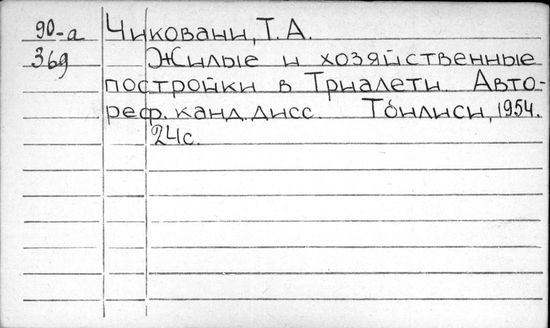 90-а Чиковани, Т.А.
369 Жилые и хозяйственные
постройки в Триалети. Авто-
реф. канд. дисс. Тбилиси, 1954.
24с.